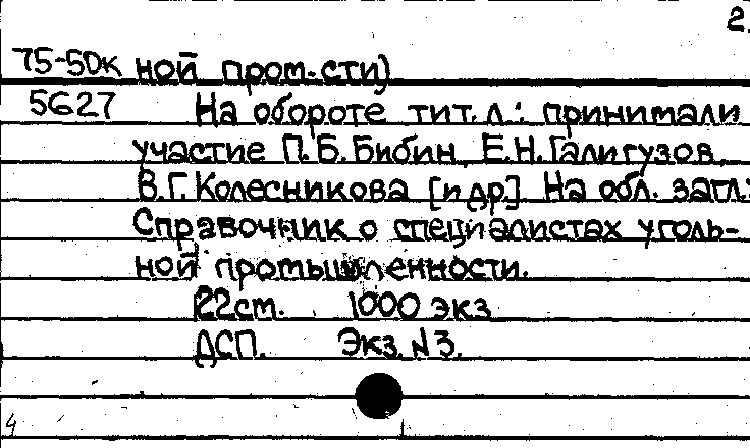 2.
75-50к ной пром-сти)
5627 На обороте тит. л.: принимали
участие П.Б. Бибин, Е.Н. Галигузов,
В.Г. Колесникова [и др.] На обл. загл.:
Справочник о специалистах уголь-
ной промышленности.
22 см. 1000 экз
ДСП. Экз. №3.
4